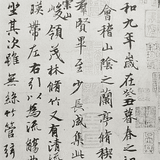 和九年歲在癸丑暮春之初
會稽山陰之蘭亭脩禊
羣賢畢至少長咸集此
峻領茂林脩竹又有清流
暎帶左右引以為流觴
坐其次雖無絲竹管弦